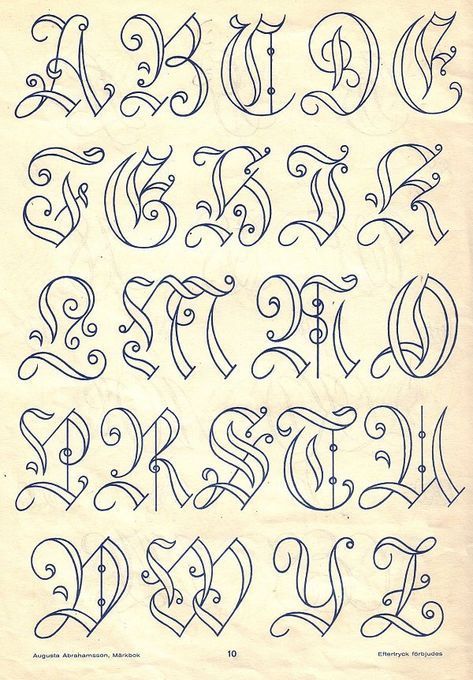 A B C D E
F G H I K
L M N O
P R S T U
V W Y Z
Augusta Abrahamsson, Märkbok 10 Eftertryck förbjudes